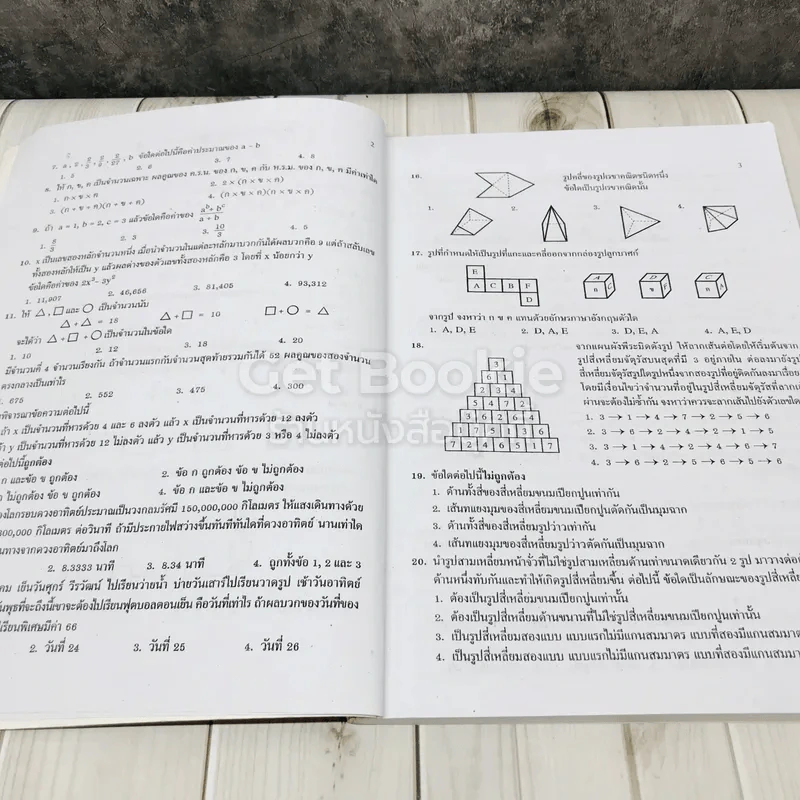 2
7. a, 2, b ข้อใดต่อไปนี้คือค่าประมาณของ a - b
1. 5 2. 6 3. 7 4. 8
8. ให้ ก, ข, ค เป็นจำนวนเฉพาะ ผลคูณของ ค.ร.น. ของ ก, ข, ค กับ ห.ร.ม. ของ ก, ข, ค มีค่าเท่าใด
1. ก × ข × ค 2. 2 × (ก × ข × ค)
3. (ก + ข + ค)(ก + ข + ค) 4. (ก × ข × ค)(ก × ข × ค)
9. ถ้า a = 1, b = 2, c = 3 แล้วข้อใดคือค่าของ
2. 3 3. 10/3 4. 5
10. x เป็นเลขสองหลักจำนวนหนึ่ง เมื่อนำจำนวนในแต่ละหลักมาบวกกันได้ผลบวกคือ 9 แต่ถ้าสลับเลข
ทั้งสองหลักให้เป็น y แล้วผลต่างของตัวเลขทั้งสองหลักคือ 3 โดยที่ x น้อยกว่า y
ข้อใดคือค่าของ 2x³ - 3y²
1. 11,907 2. 46,656 3. 51,405 4. 93,312
11. ให้ △, □ และ ○ เป็นจำนวนนับ
△ + △ = 18 △ + □ = 10 □ + ○ = △
จะได้ว่า △ + □ + ○ เป็นจำนวนในข้อใด
1. 10 2. 12 3. 18 4. 20
มีจำนวนที่ 4 จำนวนเรียงกัน ถ้าจำนวนแรกกับจำนวนสุดท้ายรวมกันได้ 52 ผลคูณของสองจำนวน
ตรงกลางเป็นเท่าไร
675 2. 552 3. 475 4. 300
พิจารณาข้อความต่อไปนี้
ถ้า x เป็นจำนวนที่หารด้วย 4 และ 6 ลงตัว แล้ว x เป็นจำนวนที่หารด้วย 12 ลงตัว
ถ้า y เป็นจำนวนที่หารด้วย 12 ไม่ลงตัว แล้ว y เป็นจำนวนที่หารด้วย 3 หรือ 4 ไม่ลงตัว
ต่อไปนี้ถูกต้อง
ก และข้อ ข ถูกต้อง 2. ข้อ ก ถูกต้อง ข้อ ข ไม่ถูกต้อง
ไม่ถูกต้อง ข้อ ข ถูกต้อง 4. ข้อ ก และข้อ ข ไม่ถูกต้อง
งโลกรอบดวงอาทิตย์ประมาณเป็นวงกลมรัศมี 150,000,000 กิโลเมตร ให้แสงเดินทางด้วย
300,000 กิโลเมตร ต่อวินาที ถ้ามีประกายไฟสว่างขึ้นทันทีทันใดที่ดวงอาทิตย์ นานเท่าใด
นทางจากดวงอาทิตย์มาถึงโลก
2. 8.3333 นาที 3. 8.34 นาที 4. ถูกทั้งข้อ 1, 2 และ 3
คม เย็นวันศุกร์ วีรวัฒน์ ไปเรียนว่ายน้ำ บ่ายวันเสาร์ไปเรียนวาดรูป เช้าวันอาทิตย์
พุธที่จะถึงนี้เขาจะต้องไปเรียนฟุตบอลตอนเย็น คือวันที่เท่าไร ถ้าผลบวกของวันที่ของ
เรียนพิเศษมีค่า 66
2. วันที่ 24 3. วันที่ 25 4. วันที่ 26
3
16. รูปคลี่ของรูปเรขาคณิตชนิดหนึ่ง
ข้อใดเป็นรูปเรขาคณิตนั้น
1. 2. 3. 4.
17. รูปที่กำหนดให้เป็นรูปที่แกะและคลี่ออกจากกล่องรูปลูกบาศก์
E
A C B F
D
A ก B ข C ค
จากรูป จงหาว่า ก ข ค แทนด้วยอักษรภาษาอังกฤษตัวใด
1. A, D, E 2. D, A, E 3. D, E, A 4. A, E, D
18. จากแผนผังพีระมิดดังรูป ให้ลากเส้นต่อโดยให้เริ่มต้นจาก
รูปสี่เหลี่ยมจัตุรัสบนสุดที่มี 3 อยู่ภายใน ต่อลงมายังรูป
สี่เหลี่ยมจัตุรัสรูปใดรูปหนึ่งจากสองรูปที่อยู่ติดกันลงมาเรื่อย
โดยมีเงื่อนไขว่าจำนวนที่อยู่ในรูปสี่เหลี่ยมจัตุรัสที่ลากเ
ผ่านจะต้องไม่ซ้ำกัน จงหาว่าควรจะลากเส้นไปยังตัวเลขใด
3
6 1
2 3 4
5 4 7 2
3 6 2 6 4
1 7 5 1 3 6
7 2 4 6 5 1 7
1. 3 → 1 → 4 → 7 → 2 → 5 → 6
2. 3 → 6 → 2 → 4 → 6 → 5 → 6
3. 3 → 1 → 4 → 2 → 6 → 3 → 7
4. 3 → 6 → 2 → 5 → 6 → 5 → 6
19. ข้อใดต่อไปนี้ไม่ถูกต้อง
1. ด้านทั้งสี่ของสี่เหลี่ยมขนมเปียกปูนเท่ากัน
2. เส้นทแยงมุมของสี่เหลี่ยมขนมเปียกปูนตัดกันเป็นมุมฉาก
3. ด้านทั้งสี่ของสี่เหลี่ยมรูปว่าวเท่ากัน
4. เส้นทแยงมุมของสี่เหลี่ยมรูปว่าวตัดกันเป็นมุมฉาก
20. นำรูปสามเหลี่ยมหน้าจั่วที่ไม่ใช่รูปสามเหลี่ยมด้านเท่าขนาดเดียวกัน 2 รูป มาวางต่อ
ด้านหนึ่งทับกันและทำให้เกิดรูปสี่เหลี่ยมขึ้น ต่อไปนี้ ข้อใดเป็นลักษณะของรูปสี่เหลี่ย
1. ต้องเป็นรูปสี่เหลี่ยมขนมเปียกปูนเท่านั้น
2. ต้องเป็นรูปสี่เหลี่ยมด้านขนานที่ไม่ใช่รูปสี่เหลี่ยมขนมเปียกปูนเท่านั้น
3. เป็นรูปสี่เหลี่ยมสองแบบ แบบแรกไม่มีแกนสมมาตร แบบที่สองมีแกนสมมาต
4. เป็นรูปสี่เหลี่ยมสองแบบ แบบแรกไม่มีแกนสมมาตร แบบที่สองมีแกนสมมาต
Get Bookie
ร้านหนังสือ